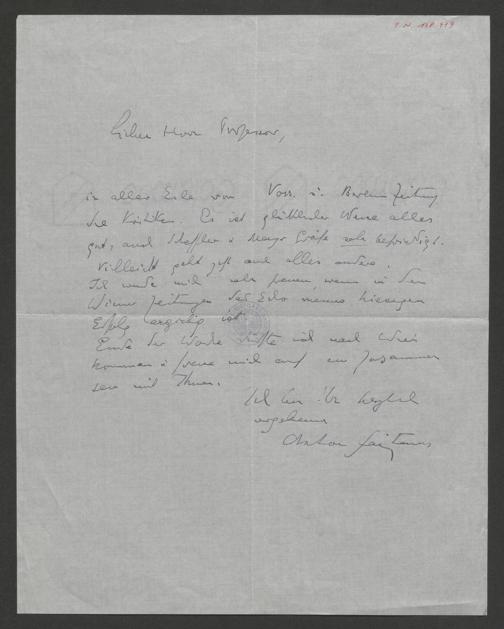 I. N. 168.479
Lieber Herr Professor,
in aller Eile von Voss. u. Börsen Zeitung
die Kritiken. Es ist glücklicher Weise alles
gut, auch Scheffler u Meyer Gräfe sehr befriedigt.
Vielleicht geht jetzt auch alles andere.
Ich würde mich sehr freuen wenn in den
Wiener Zeitungen das Echo meines hiesigen
Erfolg
Ende der Woche dürfte ich nach Wien
kommen u freue mich auf ein Zusammen
sein mit Ihnen.
Ich bin Ihr herzlich
ergebener
Anton Faistauer